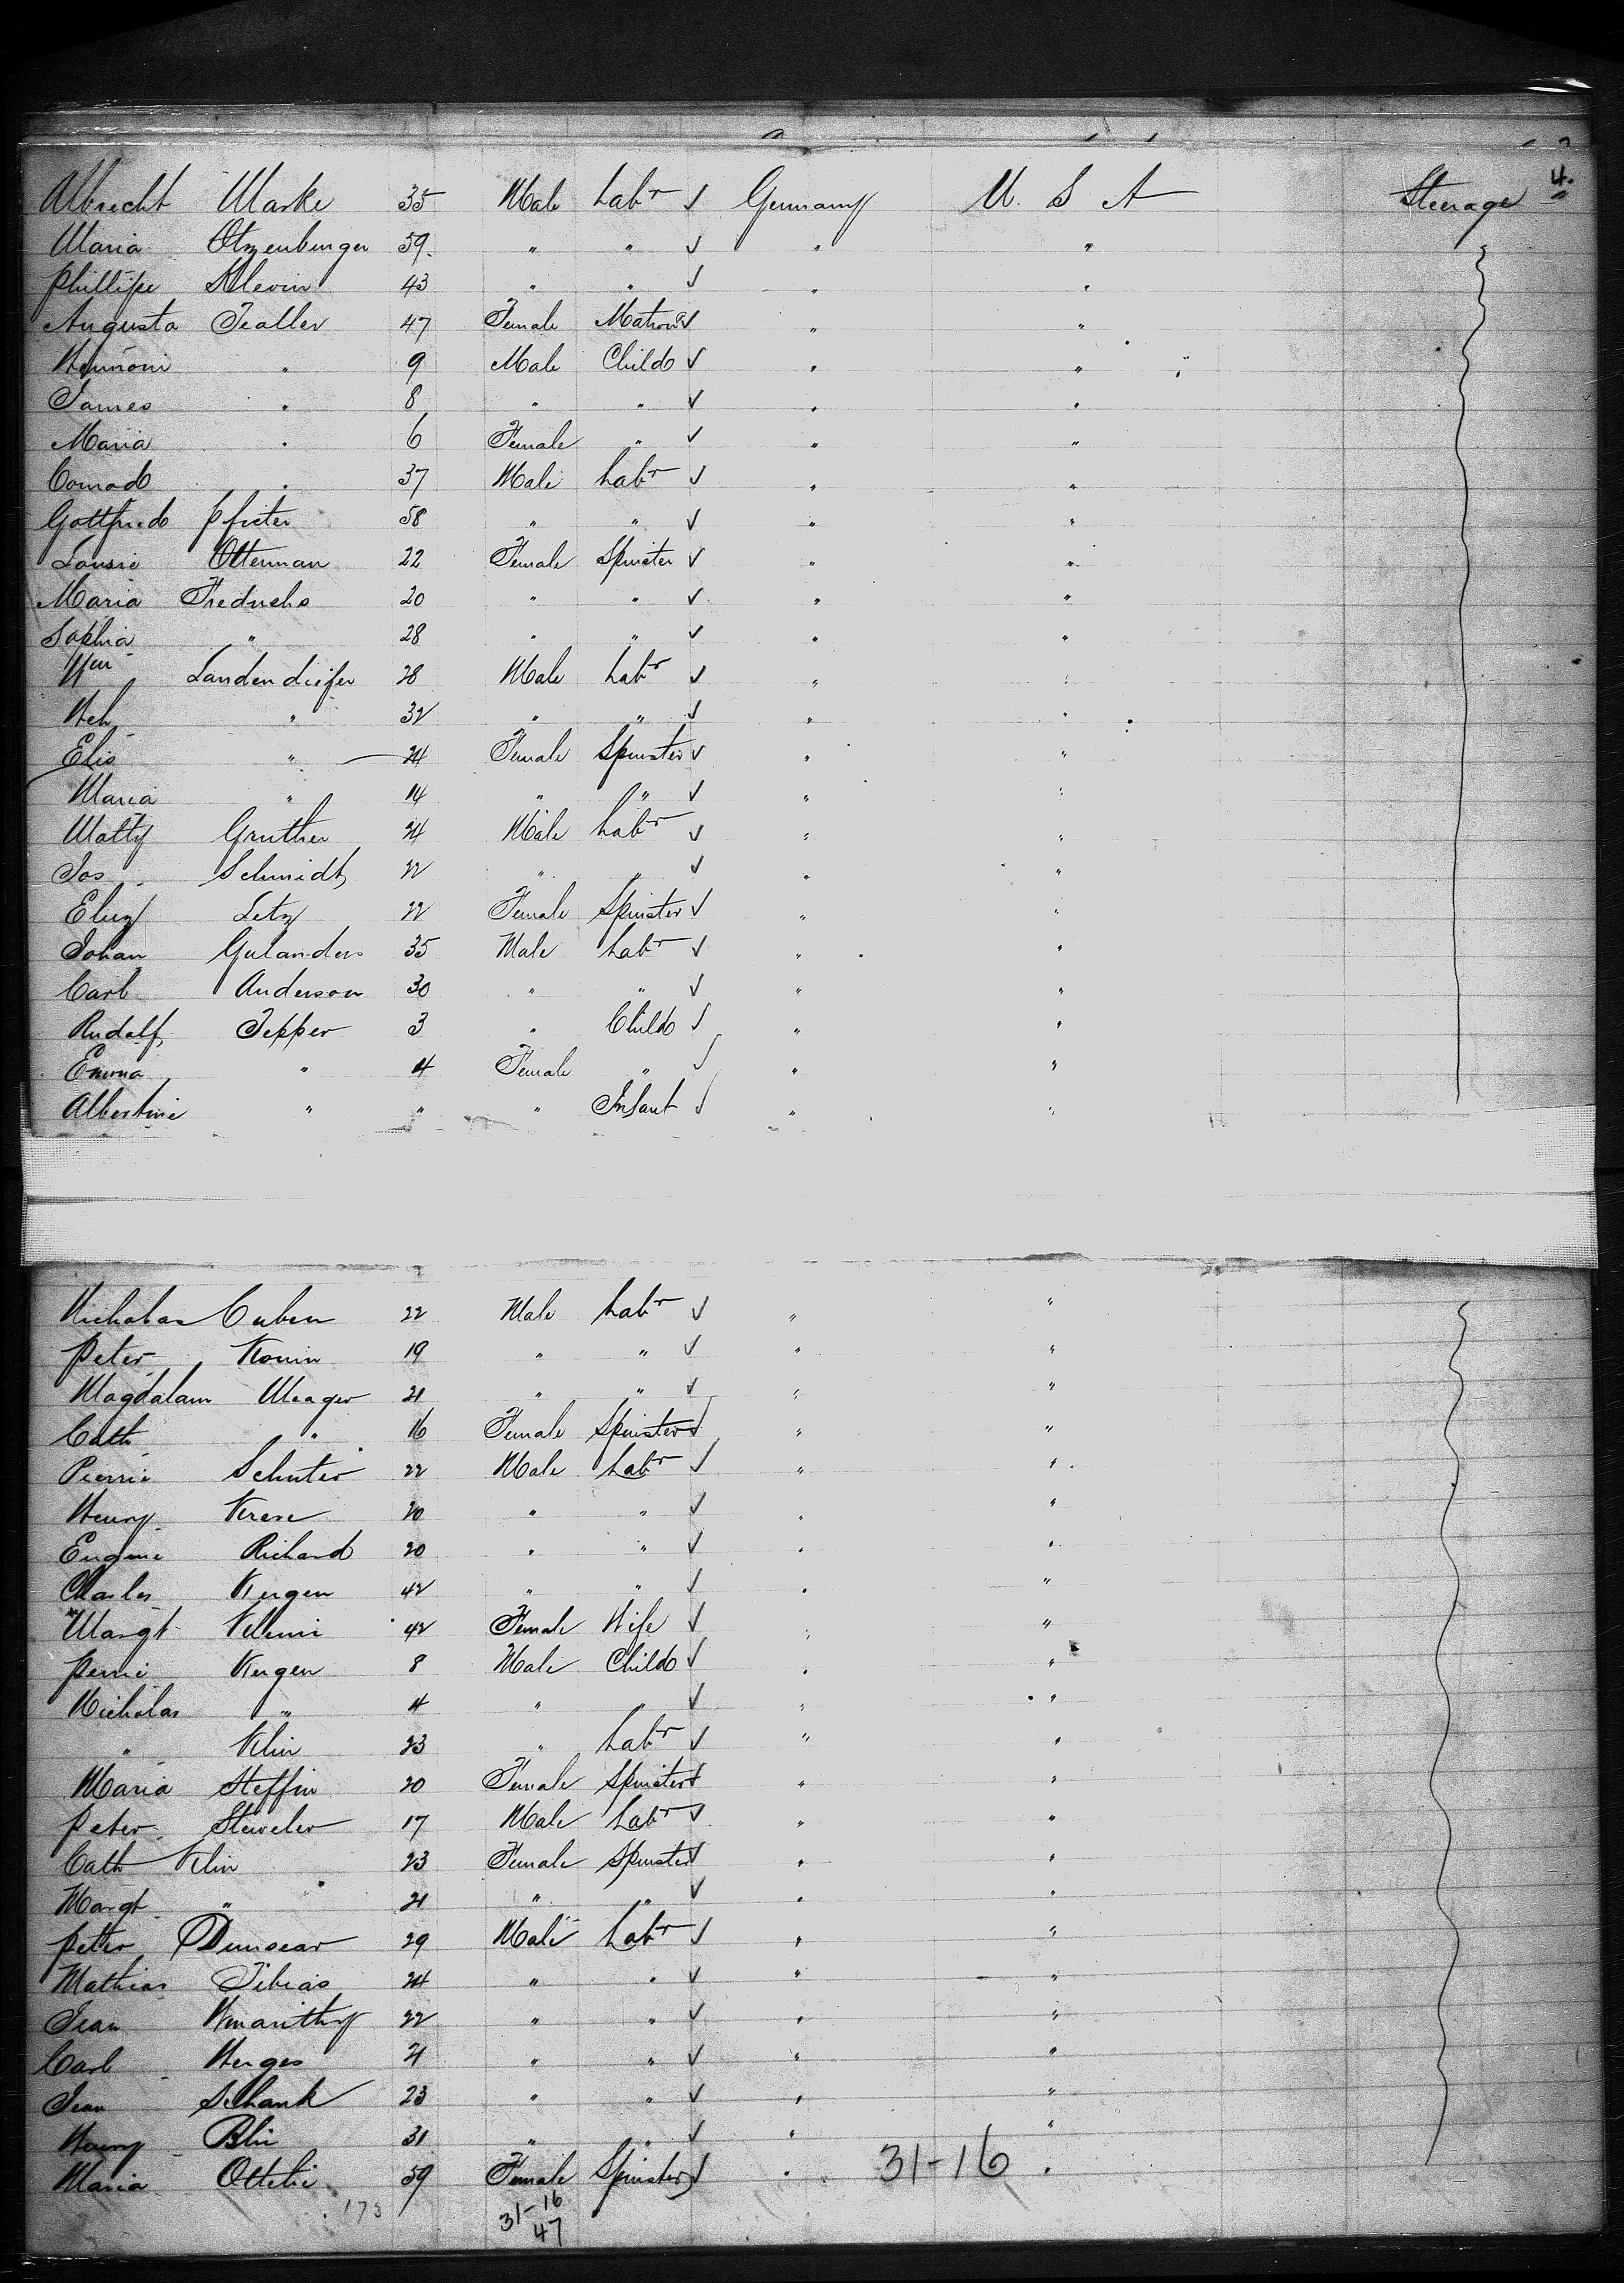 4.
Albrecht Marke 35 Male Labr ✓ Germany U. S. A Steerage
Maria Otzenburger 59 " " ✓ " "
Phillipe Klevin 43 " " ✓ " "
Augusta Tealler 47 Female Matron ✓ " "
" 9 Male Child ✓ " "
James " 8 " " ✓ " "
Maria " 6 Female " ✓ " "
Conrad " 37 Male Labr ✓ " "
Gottfried Pfister 58 " " ✓ " "
Lousie Otterman 22 Female Spinster ✓ " "
Maria Fredrichs 20 " " ✓ " "
Sophia " 28 " " ✓ " "
Wm Landendiefer 28 Male Labr ✓ " "
Hch " 32 " " ✓ " "
Elis " 24 Female Spinster ✓ " "
Maria " 14 " " ✓ " "
Matty Gruther 24 Male Labr ✓ " "
Jos Schmidt 22 " " ✓ " "
Eliz Letz 22 Female Spinster ✓ " "
Johan Gulander 35 Male Labr ✓ " "
Carl Anderson 30 " " ✓ " "
Rudolf Tepper 3 " Child ✓ " "
Emma " 4 Female " ✓ " "
Albertine " " " Infant ✓ " "
Nicholas Cuben 22 Male Labr ✓ " "
Peter Konin 19 " " ✓ " "
Magdalam Meager 21 " " ✓ " "
Cath " 16 Female Spinster ✓ " "
Pierrie Schuter 22 Male Labr ✓ " "
Henry Krese 20 " " ✓ " "
Eugene Richard 20 " " ✓ " "
Charles Kergen 42 " " ✓ " "
Margt 42 Female Wife ✓ " "
Perrie Kergen 8 Male Child ✓ " "
Nicholas " 4 " " ✓ " "
" Klin 23 " Labr ✓ " "
Maria Steffin 20 Female Spinster ✓ " "
Peter Steveler 17 Male Labr ✓ " "
Cath Klin 23 Female Spinster ✓ " "
Margt " 21 " " ✓ " "
Peter 29 Male Labr ✓ " "
Mathias Tibias 24 " " ✓ " "
Jean 22 " " ✓ " "
Carl Herges 21 " " ✓ " "
Jean Schank 23 " " ✓ " "
Henry Bli 31 " " ✓ " "
Maria Ottilie 59 Female Spinster ✓ " 31-16 "
173
31-16
47